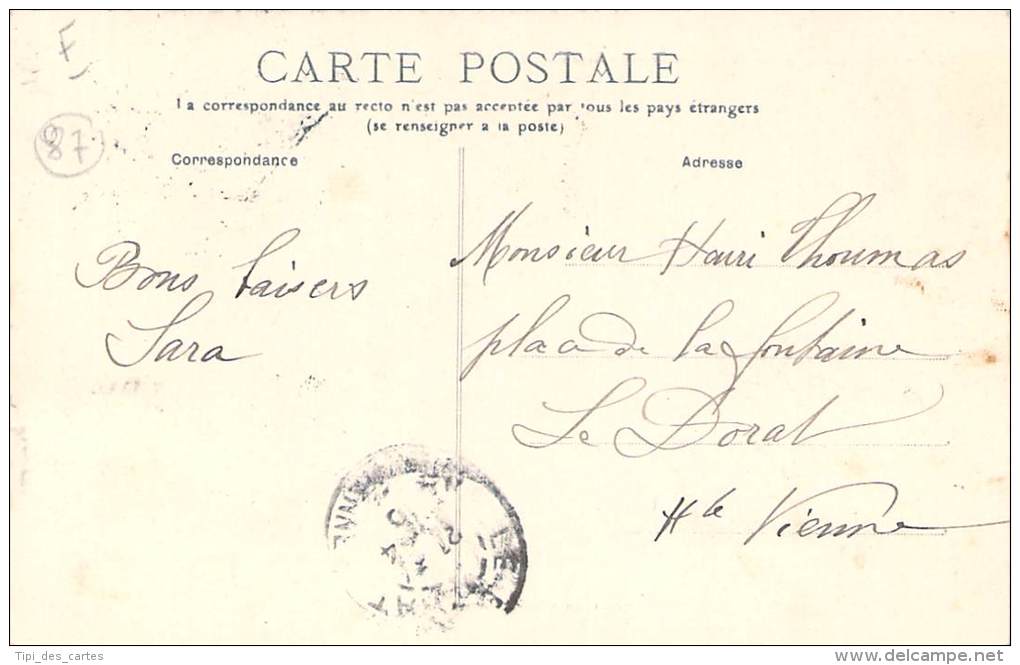 F
87
CARTE POSTALE
La correspondance au recto n'est pas acceptée par tous les pays étrangers
(se renseigner à la poste)
Correspondance
Adresse
Bons baisers
Sara
Monsieur Henri Thoumas
place de la fontaine
Le Dorat
Hte Vienne
Tipi_des_cartes
www.delcampe.net